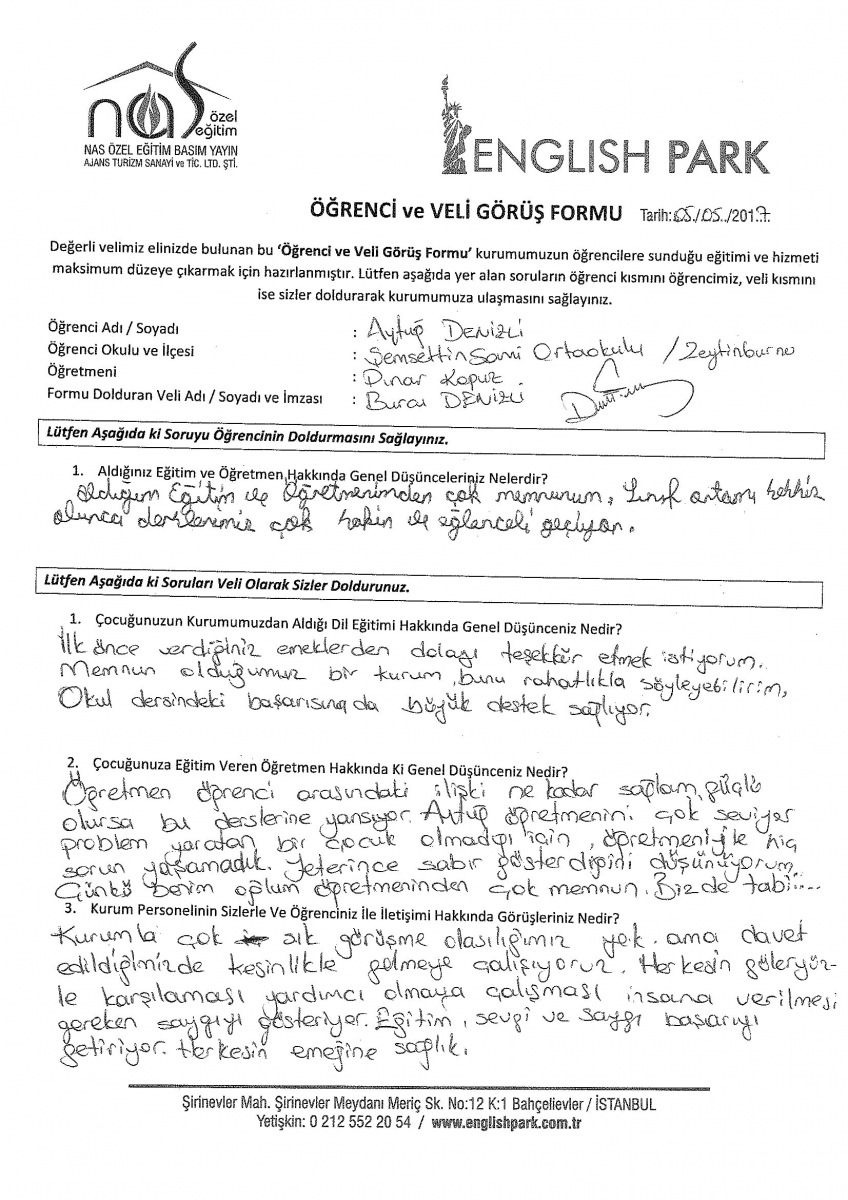 nas özel eğitim
NAS ÖZEL EĞİTİM BASIM YAYIN
AJANS TURİZM SANAYİ ve TİC. LTD. ŞTİ.
ENGLISH PARK
ÖĞRENCİ ve VELİ GÖRÜŞ FORMU Tarih: 05/05./2017
Değerli velimiz elinizde bulunan bu ‘Öğrenci ve Veli Görüş Formu’ kurumumuzun öğrencilere sunduğu eğitimi ve hizmeti
maksimum düzeye çıkarmak için hazırlanmıştır. Lütfen aşağıda yer alan soruların öğrenci kısmını öğrencimiz, veli kısmını
ise sizler doldurarak kurumumuza ulaşmasını sağlayınız.
Öğrenci Adı / Soyadı : Aytuğ DENİZLİ
Öğrenci Okulu ve İlçesi : Şemsettin Sami Ortaokulu / Zeytinburnu
Öğretmeni : Pınar Kopuz
Formu Dolduran Veli Adı / Soyadı ve İmzası : Burcu DENİZLİ
Lütfen Aşağıda ki Soruyu Öğrencinin Doldurmasını Sağlayınız.
1. Aldığınız Eğitim ve Öğretmen Hakkında Genel Düşünceleriniz Nelerdir?
Aldığım Eğitim ve Öğretmenimden çok memnunum, Sınıf ortamı
olunca derslerimiz çok ve eğlenceli geçiyor.
Lütfen Aşağıda ki Soruları Veli Olarak Sizler Doldurunuz.
1. Çocuğunuzun Kurumumuzdan Aldığı Dil Eğitimi Hakkında Genel Düşünceniz Nedir?
İlk önce verdiğiniz emeklerden dolayı teşekkür etmek istiyorum.
Memnun olduğumuz bir kurum, bunu rahatlıkla söyleyebilirim,
Okul dersindeki başarısına da büyük destek sağlıyor.
2. Çocuğunuza Eğitim Veren Öğretmen Hakkında Ki Genel Düşünceniz Nedir?
Öğretmen öğrenci arasındaki ilişki ne kadar sağlam, güçlü
olursa bu derslerine yansıyor. Aytuğ öğretmenini çok seviyor
problem yaratan bir çocuk olmadığı için, öğretmeniyle hiç
sorun yaşamadık. Yeterince sabır gösterdiğini düşünüyorum.
Çünkü benim oğlum öğretmeninden çok memnun. Biz de tabii....
3. Kurum Personelinin Sizlerle Ve Öğrenciniz İle İletişimi Hakkında Görüşleriniz Nedir?
Kurumla çok sık görüşme olasılığımız yok. ama davet
edildiğimizde kesinlikle gelmeye çalışıyoruz. Herkesin güleryüz-
le karşılaması yardımcı olmaya çalışması insana verilmesi
gereken saygıyı gösteriyor. Eğitim, sevgi ve saygı başarıyı
getiriyor. Herkesin emeğine sağlık.
Şirinevler Mah. Şirinevler Meydanı Meriç Sk. No:12 K:1 Bahçelievler / İSTANBUL
Yetişkin: 0 212 552 20 54 / www.englishpark.com.tr